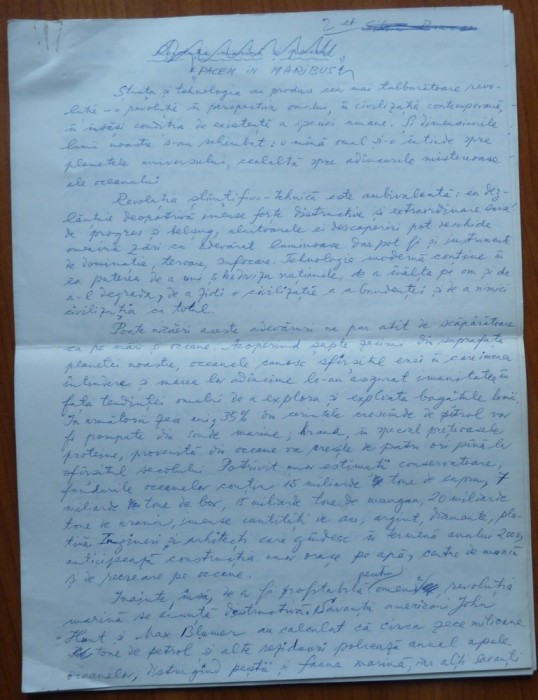 2 et
"PACEM IN MARIBUS"
Știința și tehnologia au produs cea mai tulburătoare revo-
luție - o revoluție în perspectiva omului, în civilizația contemporană,
în însăși condiția de existență a speței umane. Și dimensiunile
lumii noastre s-au schimbat: o mînă omul și-o întinde spre
planetele universului, cealaltă spre adîncurile misterioase
ale oceanului.
Revoluția științifico-tehnică este ambivalentă: ea dez-
lănțuie deopotrivă imense forțe distructive și extraordinare
de progres și belșug, uluitoarele ei descoperiri pot deschide
omenirii zări cu adevărat luminoase dar pot fi și instrumente
de dominație, teroare, sufocare. Tehnologia modernă conține în
ea puterea de a uni și a diviza națiunile, de a înălța pe om și de
a-l degrada, de a zidi o civilizație a abundenței și de a nimici
civilizația cu totul.
Poate nicăieri aceste adevăruri nu par atît de scăpărătoare
ca pe mări și oceane. Acoperind șapte zecimi din suprafața
planetei noastre, oceanele cunosc sfîrșitul erei în care imensa
întindere și marea lor adîncime le-au asigurat imunitatea în
fața tendinței omului de a explora și exploata bogățiile lumii.
În următorii zece ani, 35% din cerințele crescînde de petrol vor
fi pompate din sonde marine; hrana, în special prețioasele
proteine, provenită din oceane va crește de patru ori pînă la
sfîrșitul secolului. Potrivit unor estimații conservatoare,
fundurile oceanelor conțin 15 miliarde tone de cupru, 7
miliarde tone de bor, 15 miliarde tone de mangan, 20 miliarde
tone de uraniu, imense cantități de aur, argint, diamante, pla-
tină. Ingineri și arhitecți care gîndesc în termenii anului 2000,
anticipează construcția unor orașe pe apă, centre de muncă
și de recreare pe oceane.
Înainte, însă, de a fi profitabilă pentru omenire, revoluția
marină se anunță destructivă. Savanții americani John
Hunt și Max Blumer au calculat că circa zece milioane
tone de petrol și alte reziduuri poluează anual apele
oceanelor, distrugînd peștii și fauna marină, iar alți savanți